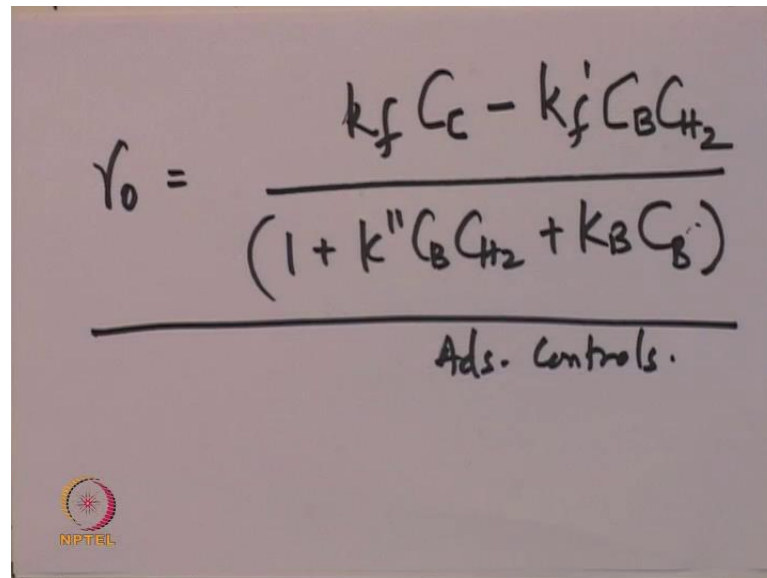 r₀ = k_f C_C - k_f' C_B C_H₂
(1 + K'' C_B C_H₂ + K_B C_B)
Ads. Controls.
NPTEL